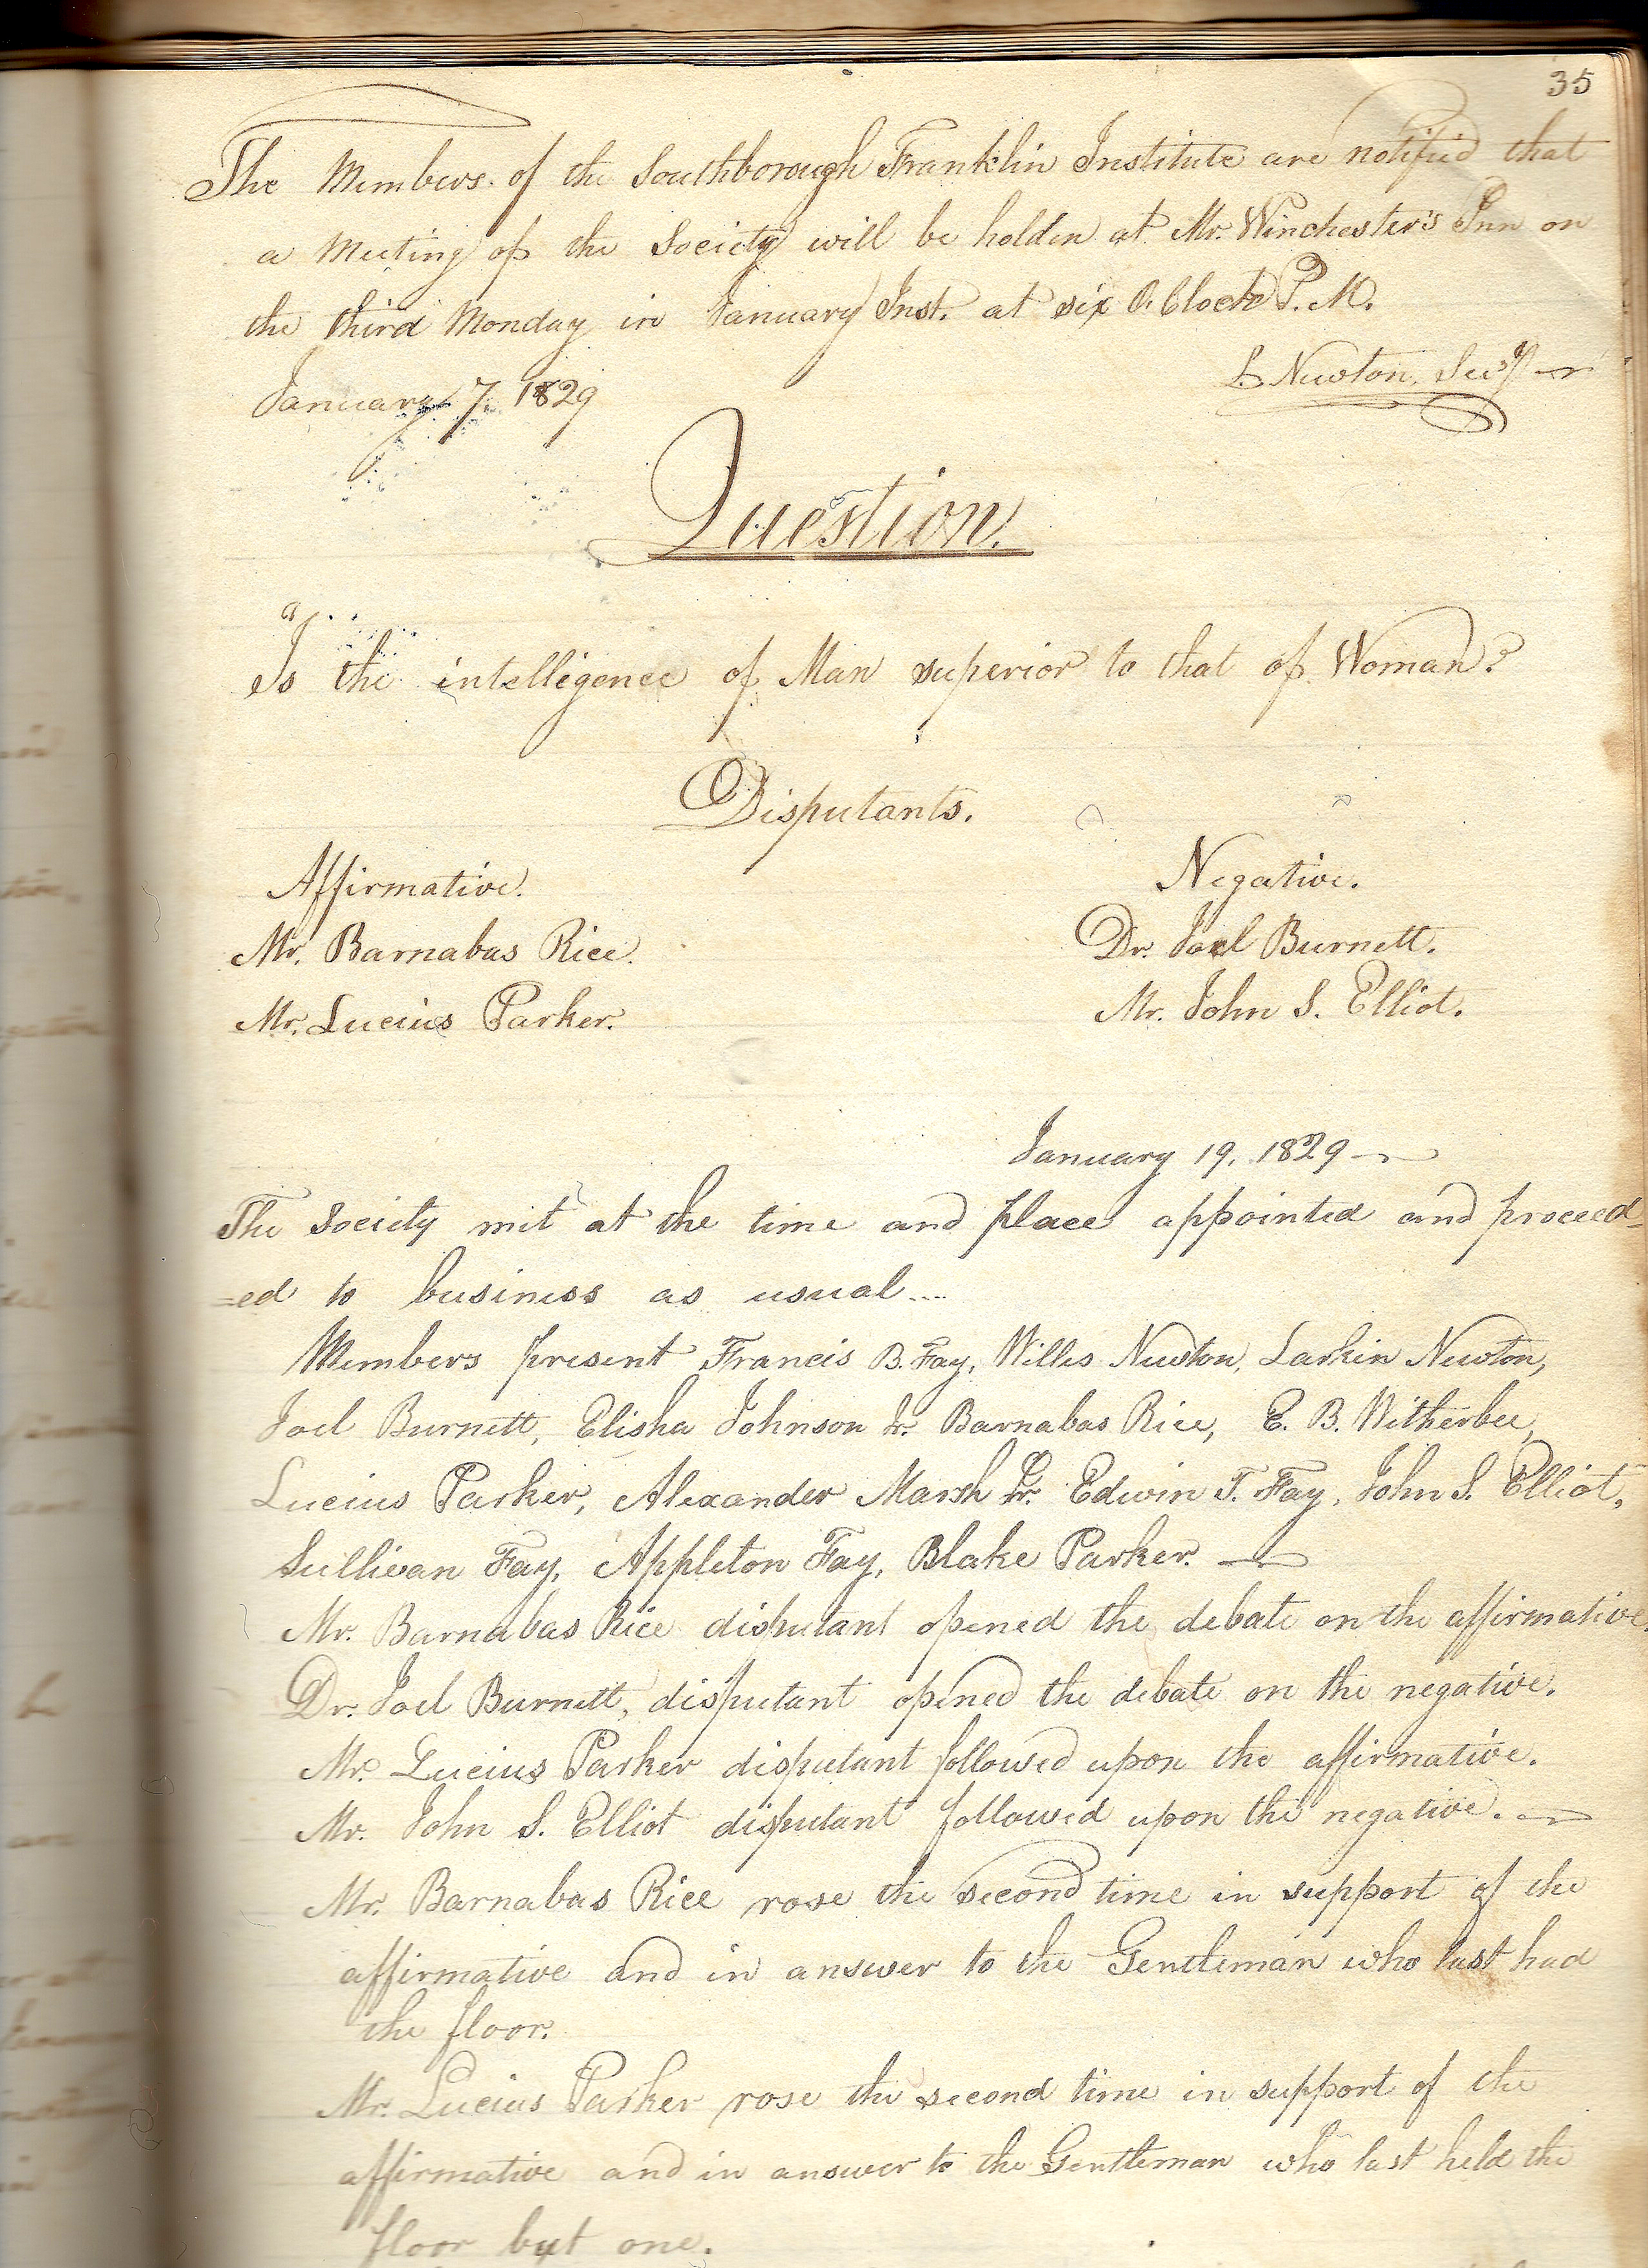 35
The Members of the Southborough Franklin Institute are notified that
a Meeting of the Society will be holden at Mr. Winchester's Inn on
the third Monday in January Inst. at six O. Clock P. M.
L. Newton, Secy.
January 7. 1829
Question.
Is the intelligence of Man superior to that of Woman?
Disputants.
Affirmative. Negative.
Mr. Barnabas Rice. Dr. Joel Burnett.
Mr. Lucius Parker. Mr. John S. Elliot.
January 19. 1829
The Society met at the time and place appointed and proceed-
=ed to business as usual....
Members present Francis B. Fay, Willis Newton, Larkin Newton,
Joel Burnett, Elisha Johnson Jr. Barnabas Rice, E. B. Witherbee,
Lucius Parker, Alexander Marsh Jr. Edwin T. Fay, John S. Elliot,
Sullivan Fay, Appleton Fay, Blake Parker.
Mr. Barnabas Rice disputant opened the debate on the affirmative.
Dr. Joel Burnett, disputant opened the debate on the negative.
Mr. Lucius Parker disputant followed upon the affirmative.
Mr. John S. Elliot disputant followed upon the negative.
Mr. Barnabas Rice rose the second time in support of the
affirmative and in answer to the Gentleman who last had
the floor.
Mr. Lucius Parker rose the second time in support of the
affirmative and in answer to the Gentleman who last held the
floor but one.